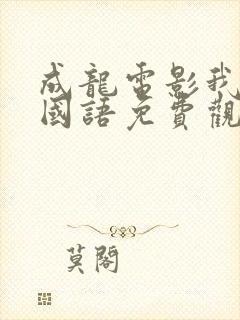 成龍電影我
國語免費觀
莫閣